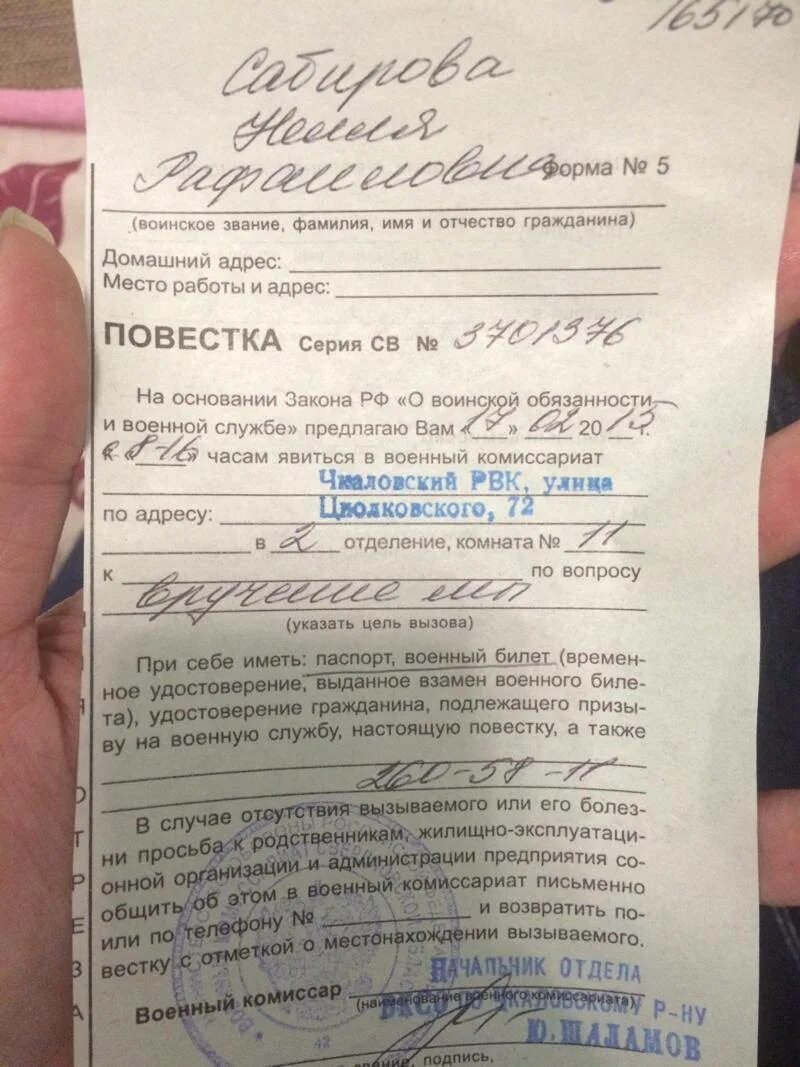 165170
Сабирова
Нелля
Рафаиловна Форма № 5
(воинское звание, фамилия, имя и отчество гражданина)
Домашний адрес:
Место работы и адрес:
ПОВЕСТКА Серия СВ № 3701376
На основании Закона РФ «О воинской обязанности
и военной службе» предлагаю Вам «17» 02 2015 г.
к «8-16» часам явиться в военный комиссариат
Чкаловский РВК, улица
по адресу: Циолковского, 72
в 2 отделение, комната № 11
к по вопросу
вручение мп
(указать цель вызова)
При себе иметь: паспорт, военный билет (времен-
ное удостоверение, выданное взамен военного биле-
та), удостоверение гражданина, подлежащего призы-
ву на военную службу, настоящую повестку, а также
260-58-11
В случае отсутствия вызываемого или его болез-
ни просьба к родственникам, жилищно-эксплуатаци-
онной организации и администрации предприятия со-
общить об этом в военный комиссариат письменно
или по телефону № и возвратить по-
вестку с отметкой о местонахождении вызываемого.
НАЧАЛЬНИК ОТДЕЛА
Военный комиссар
(наименование военного комиссариата)
ВКСО ПО ЧКАЛОВСКОМУ Р-НУ
Ю.ШАЛАМОВ
звание, подпись,
42